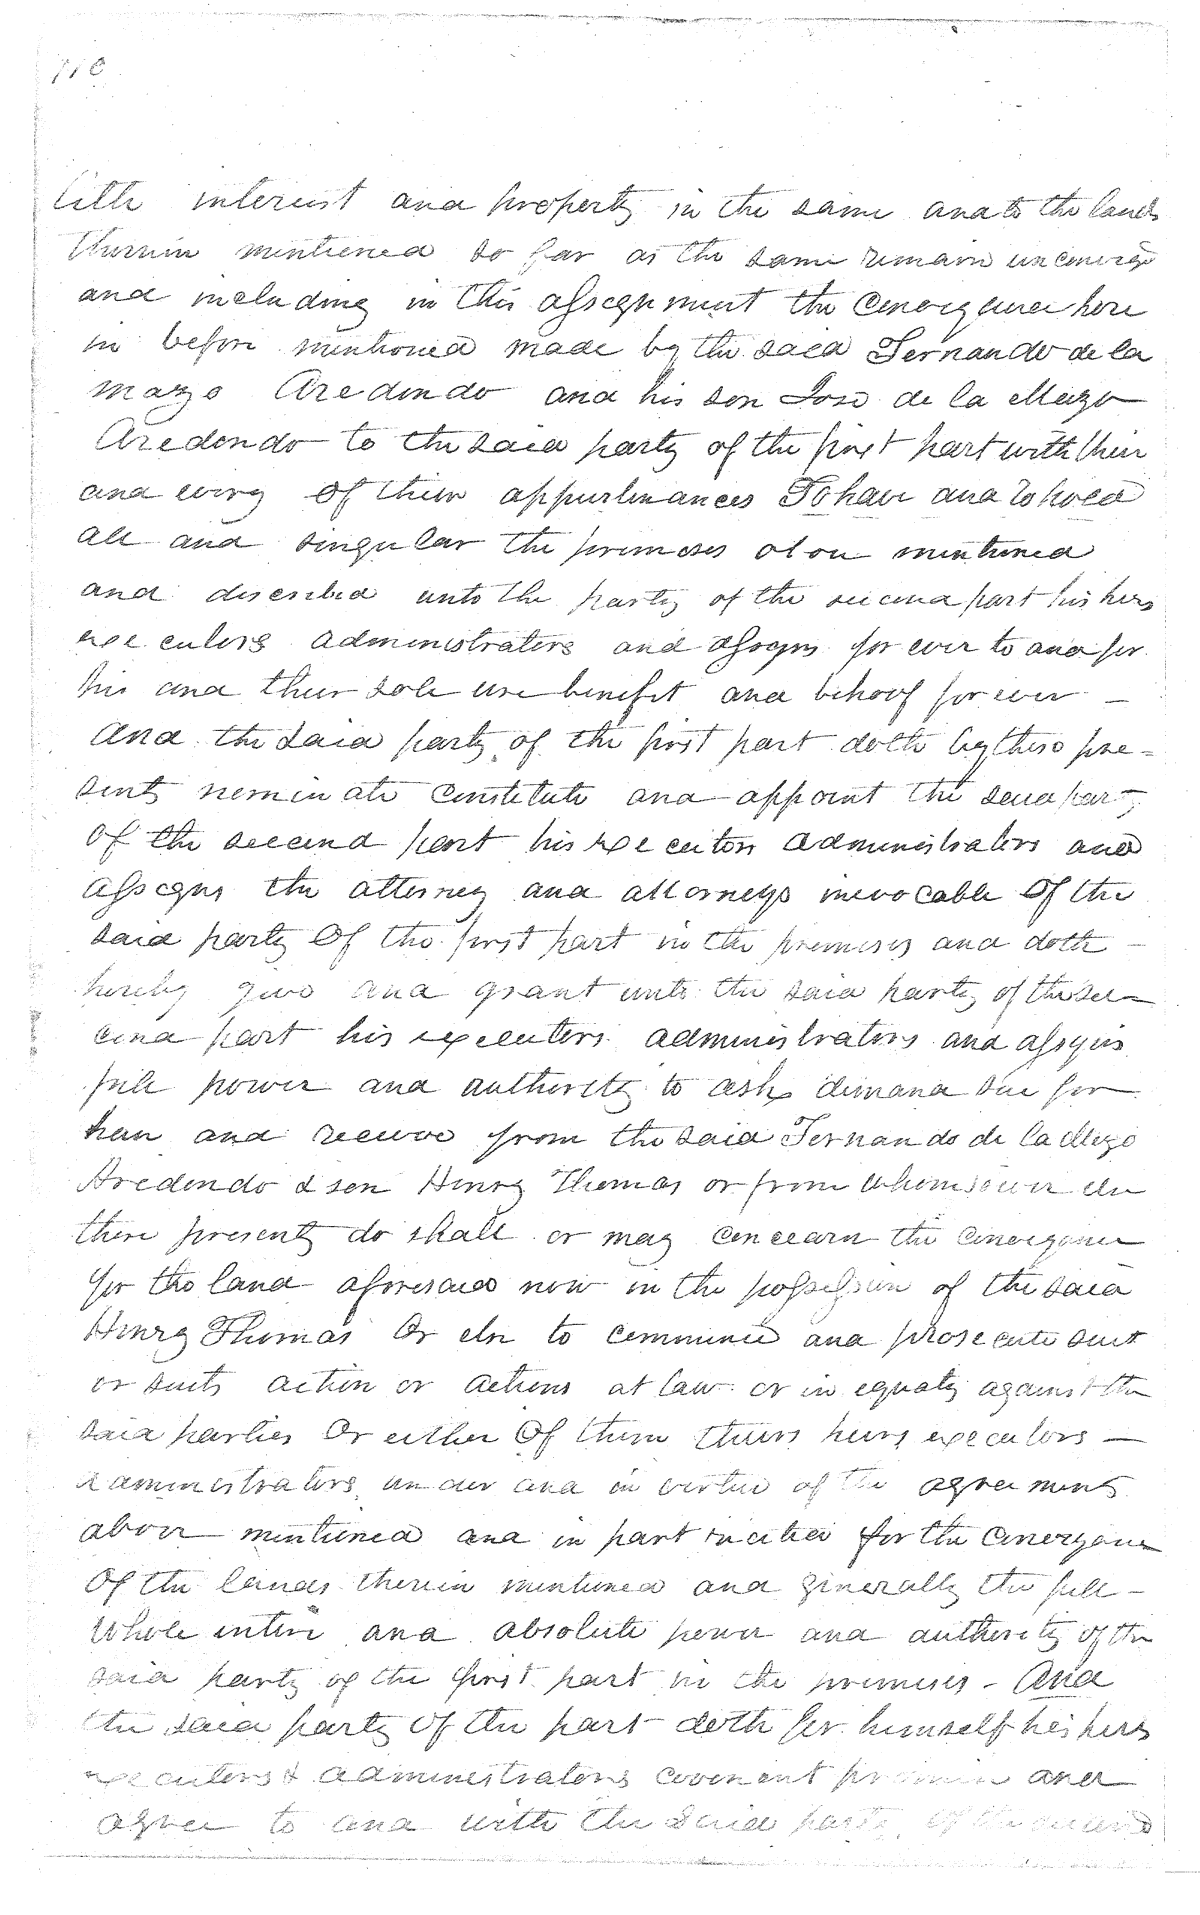 110
title interest and property in the same and to the lands
therein mentioned so far as the same remain unconveyd
and including in this assignment the conveyance here
in before mentioned made by the said Fernando de la
mazo Aredondo and his son Jose de la Mazo
Aredondo to the said party of the first part with their
and every of their appurtinances To have and to hold
all and singular the premises above mentioned
and described unto the party of the second part his heirs
executors administrators and assigns for ever to and for
his and their sole use benefit and behoof for ever —
And the said party of the first part doth by these pre=
sents nominate constitute and appoint the said party
of the second part his executors administrators and
assigns the attorney and attorneys irrevocable of the
said party of the first part in the premises and doth —
hereby give and grant unto the said party of the sec—
cond part his executors administrators and assigns
full power and authority to ask demand sue for
have and receive from the said Fernando de la Mazo
Aredondo & son Henry Thomas or from whomsoever else
these presents do shall or may concearn the conveyance
for the land aforesaid now in the possession of the said
Henry Thomas Or else to commence and prosecute suit
or suits action or actions at law or in equaty against the
said parties Or either Of them theirs heirs executors —
administrators under and in virtue of the agreements
above mentioned and in part recited for the conveyance
Of the lands therein mentioned and generally the full —
whole entire and absolute power and authority of the
said party of the first part in the premises - And
the said party of the part doth for himself his heirs
executors & administrators covenent promise and
agree to and with the said party of the second